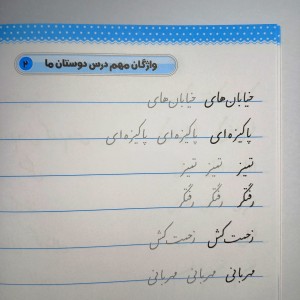 واژگان مهم درس دوستان ما ۲
خیابان‌های خیابان‌های
پاکیزه‌ای پاکیزه‌ای پاکیزه‌ای
تمیز تمیز تمیز
رفتگر رفتگر رفتگر
زحمت‌کش زحمت‌کش
مهربانی مهربانی مهربانی